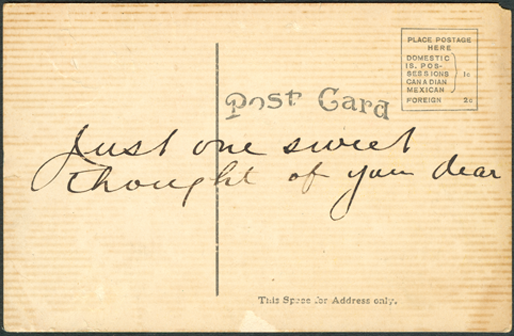 PLACE POSTAGE
HERE
DOMESTIC
IS. POS-
SESSIONS
CANADIAN
MEXICAN
1c
FOREIGN 2c
Post Card
Just one sweet
thought of you dear
This Space for Address only.